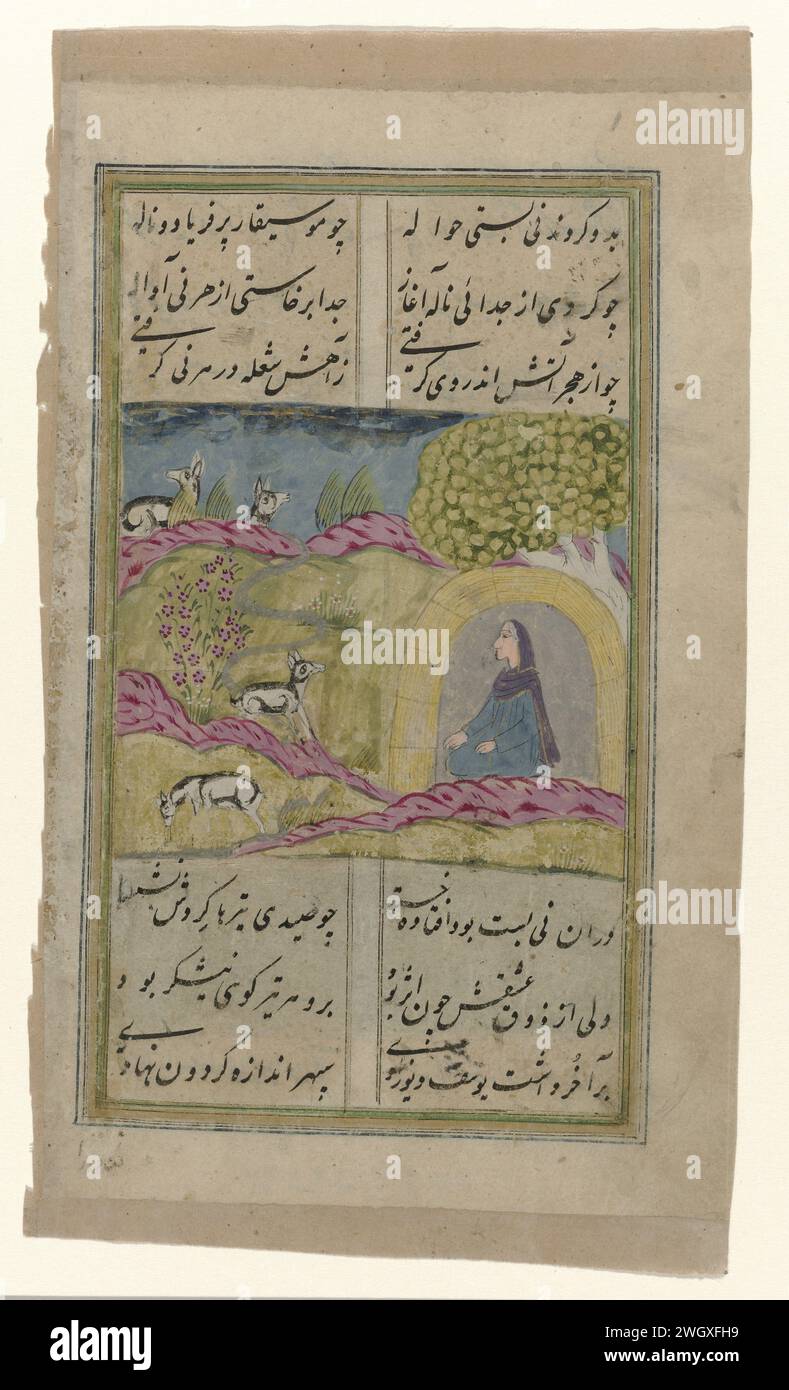 بدو کردند نی بستی حواله چو موسیقار پر فریاد و ناله
چو کردی از جدائی ناله آغاز جدا برخاستی از هر نی آواز
چو از هجر آتش اندر وی گرفتی ز آهش شعله در هر نی گرفتی
دران نی بست بود افتاده خسته چو صیدی تیرها گردش نشسته
ولی از ذوق عشقش چون اثر بود برو هر تیر گوی نیشکر بود
بر آخُر داشت یوسف دیوزادی سپهر اندازه گردون نهادی
alamy
Image ID: 2WGXFH9
www.alamy.com